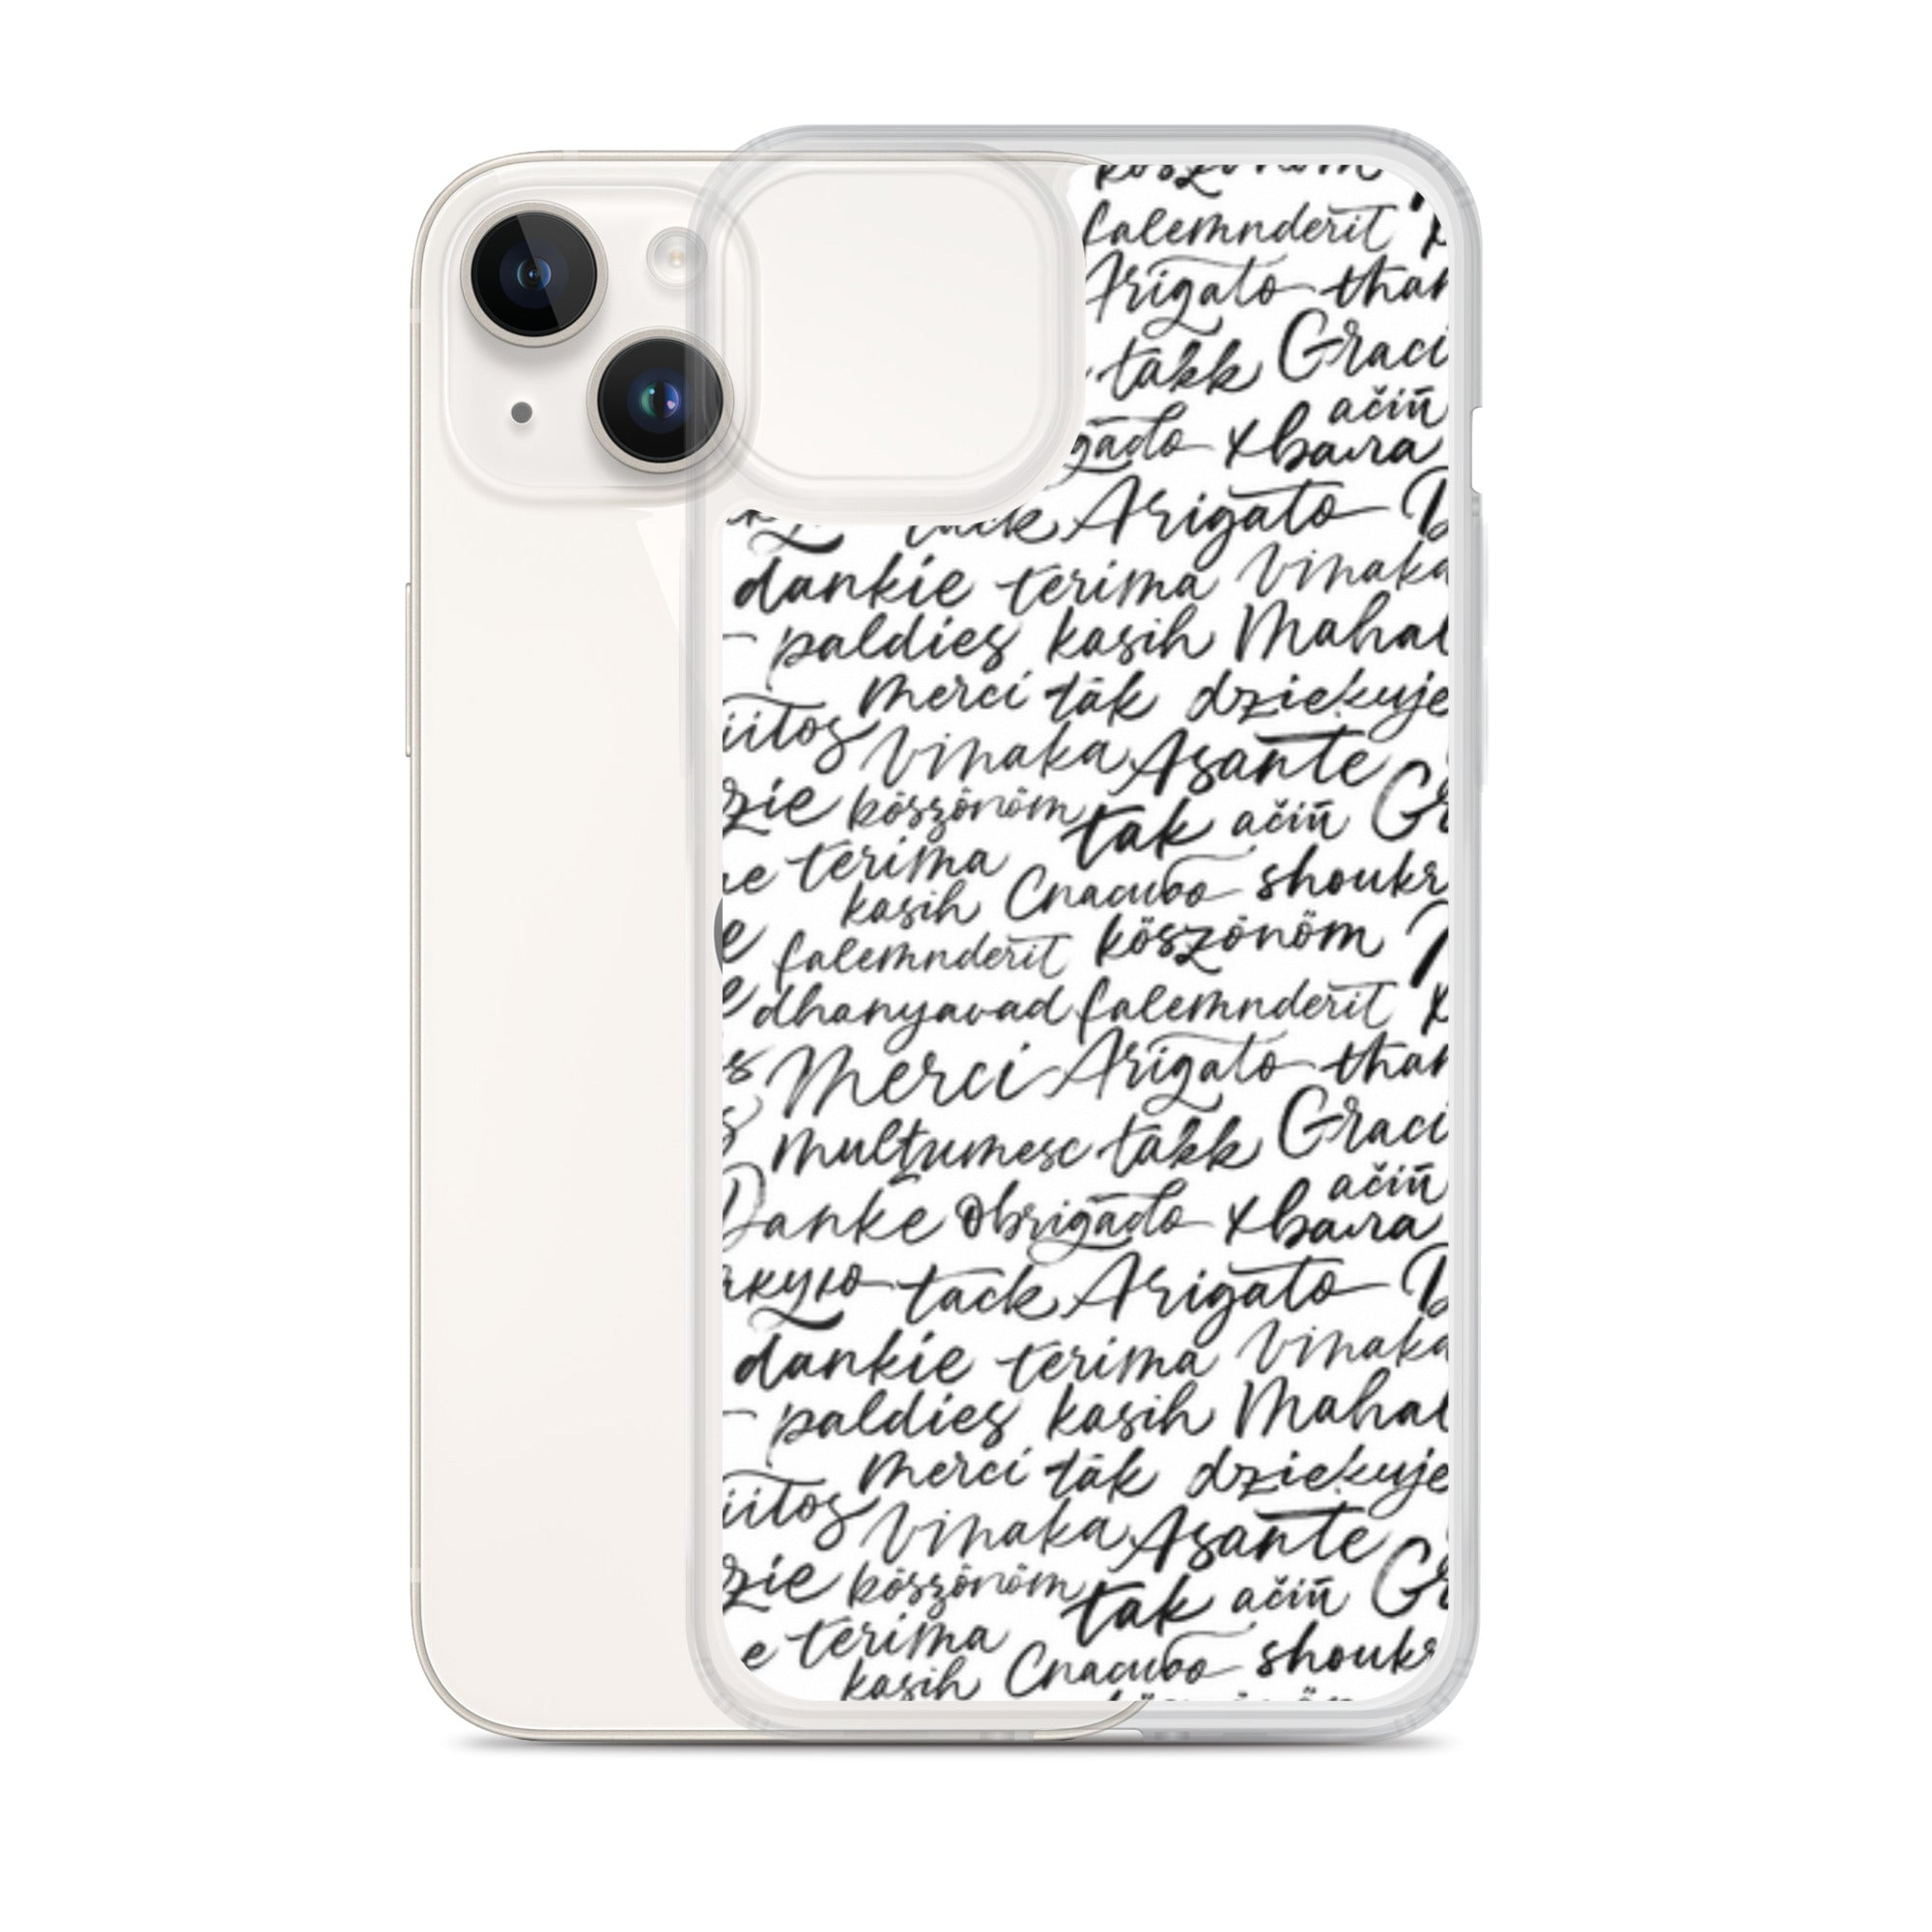 köszönöm
falemnderit
Arigato than
takk Graci
ačiū
gado хвала
tack Arigato D
dankie terima vinaka
paldies kasih Mahal
merci tak dziękuje
iitos vinaka Asante
zie köszönöm tak ačiū Gr
ne terima
kasih Спасибо shoukr
e falemnderit köszönöm
e dhanyavad falemnderit
s Merci Arigato than
multumesc takk Graci
ačiū
Danke Obrigado хвала
якую tack Arigato D
dankie terima vinaka
paldies kasih Mahal
merci tak dziękuje
iitos vinaka Asante
zie köszönöm tak ačiū Gr
e terima
kasih Спасибо shoukr